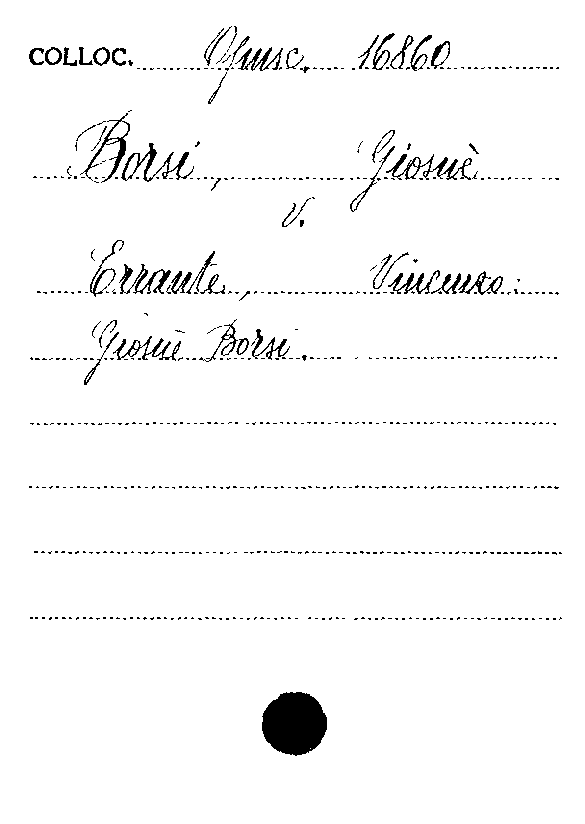 COLLOC. Opusc. 16860
Borsi, Giosuè
v.
Errante, Vincenzo:
Giosuè Borsi.